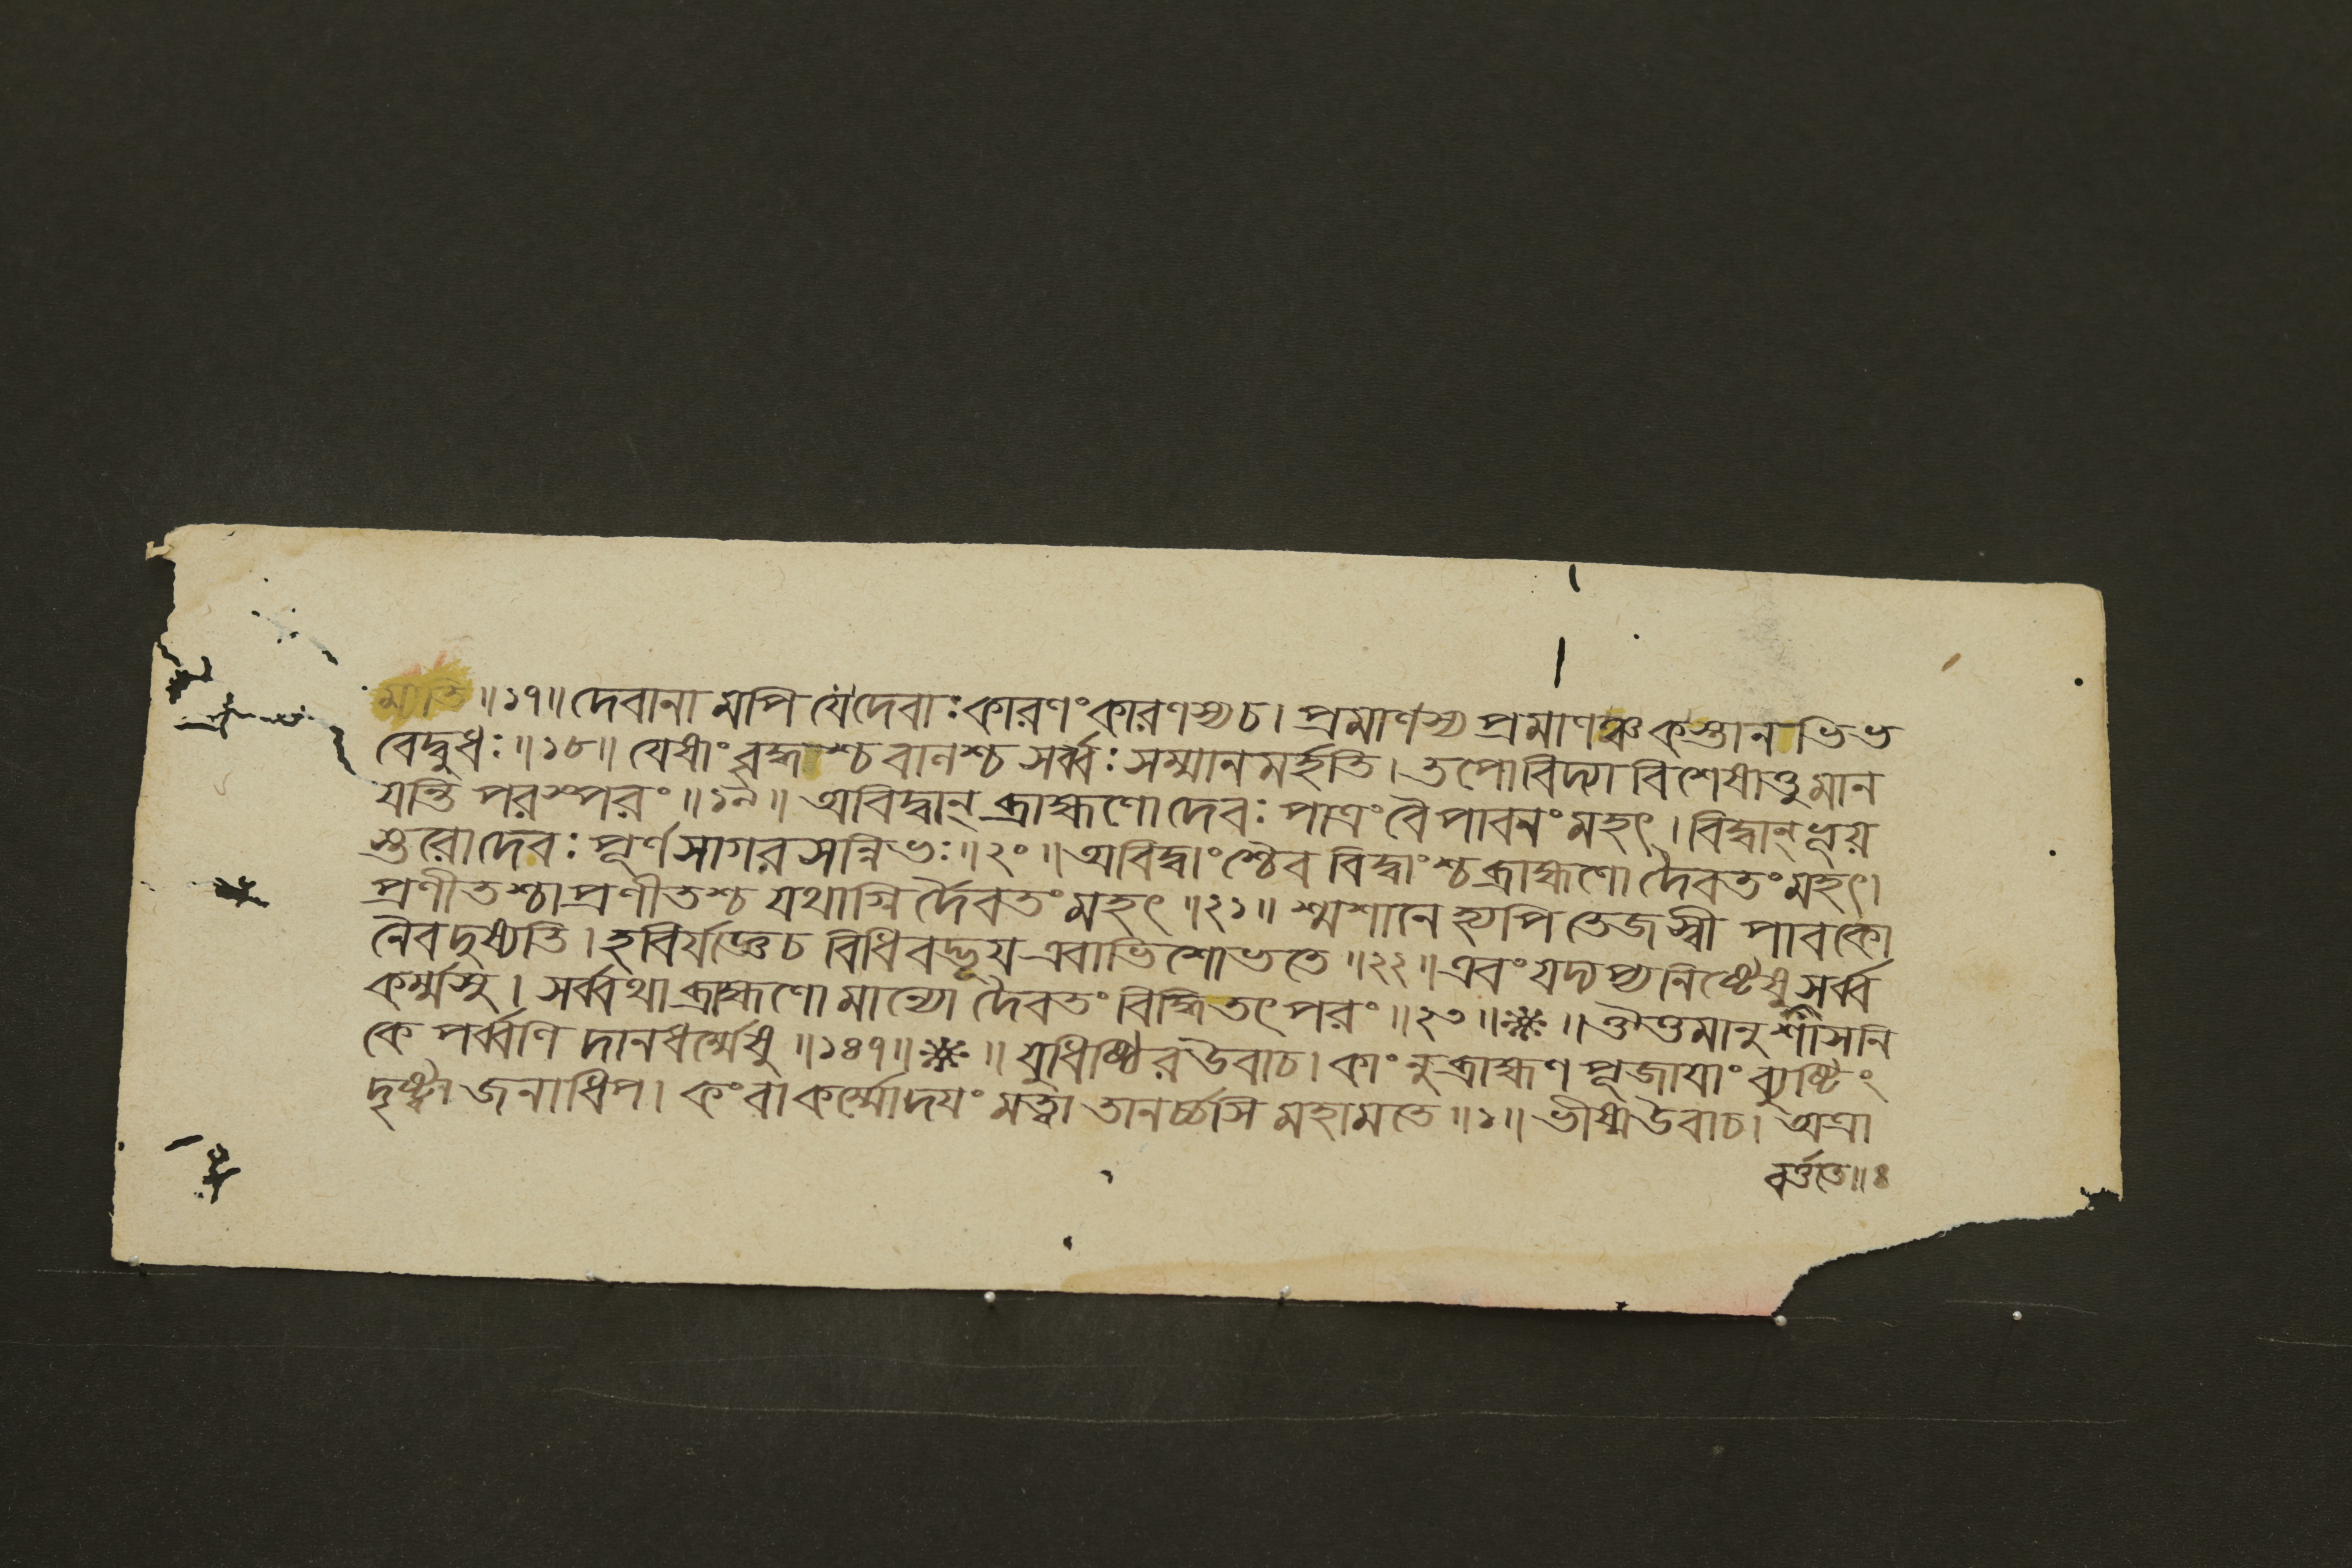 ম্যতি॥১৭॥ দেবানা মপি যেদেবাঃ কারণং কারণস্যচ। প্রমাণস্য প্রমাণঞ্চ কস্তান ভিভ
বেদ্বুধঃ॥১৮॥ যেষাং বৃদ্ধাশ্চ বালশ্চ সর্ব্বঃ সম্মানমর্হতি। তপোবিদ্যা বিশেষাত্তুমান
যন্তি পরস্পরং॥১৯॥ অবিদ্বান্ ব্রাহ্মণো দেবঃ পাত্রং বৈ পাবনং মহৎ। বিদ্বান্ ভূয়
স্তরোদেবঃ পূর্ণসাগর সন্নিভঃ॥২০॥ অবিদ্বাংশ্চৈব বিদ্বাংশ্চ ব্রাহ্মণো দৈবতং মহৎ।
প্রণীতশ্চাপ্রণীতশ্চ যথাগ্নি র্দৈবতং মহৎ॥২১॥ শ্মশানে হ্যপি তেজস্বী পাবকো
নৈব দুষ্যতি। হবির্যজ্ঞেচ বিধিবদ্ভূয় এবাভিশোভতে॥২২॥ এবং যদ্যপ্যনিষ্টেষু সর্ব্ব
কর্ম্মসু। সর্ব্বথা ব্রাহ্মণো মান্যো দৈবতং বিদ্ধি তৎ পরং॥২৩॥※॥ ঔত্তমানুশাসনি
কে পর্ব্বণি দানধর্ম্মেষু॥১৪৭॥※॥ যুধিষ্ঠির উবাচ। কাং নু ব্রাহ্মণ পূজায়াং ব্যুষ্টিং
দৃষ্ট্বা জনাধিপ। কং বা কর্ম্মোদয়ং মত্বা তানর্চ্চসি মহামতে॥১॥ ভীষ্ম উবাচ। অত্রা
বর্ত্ততে॥৪